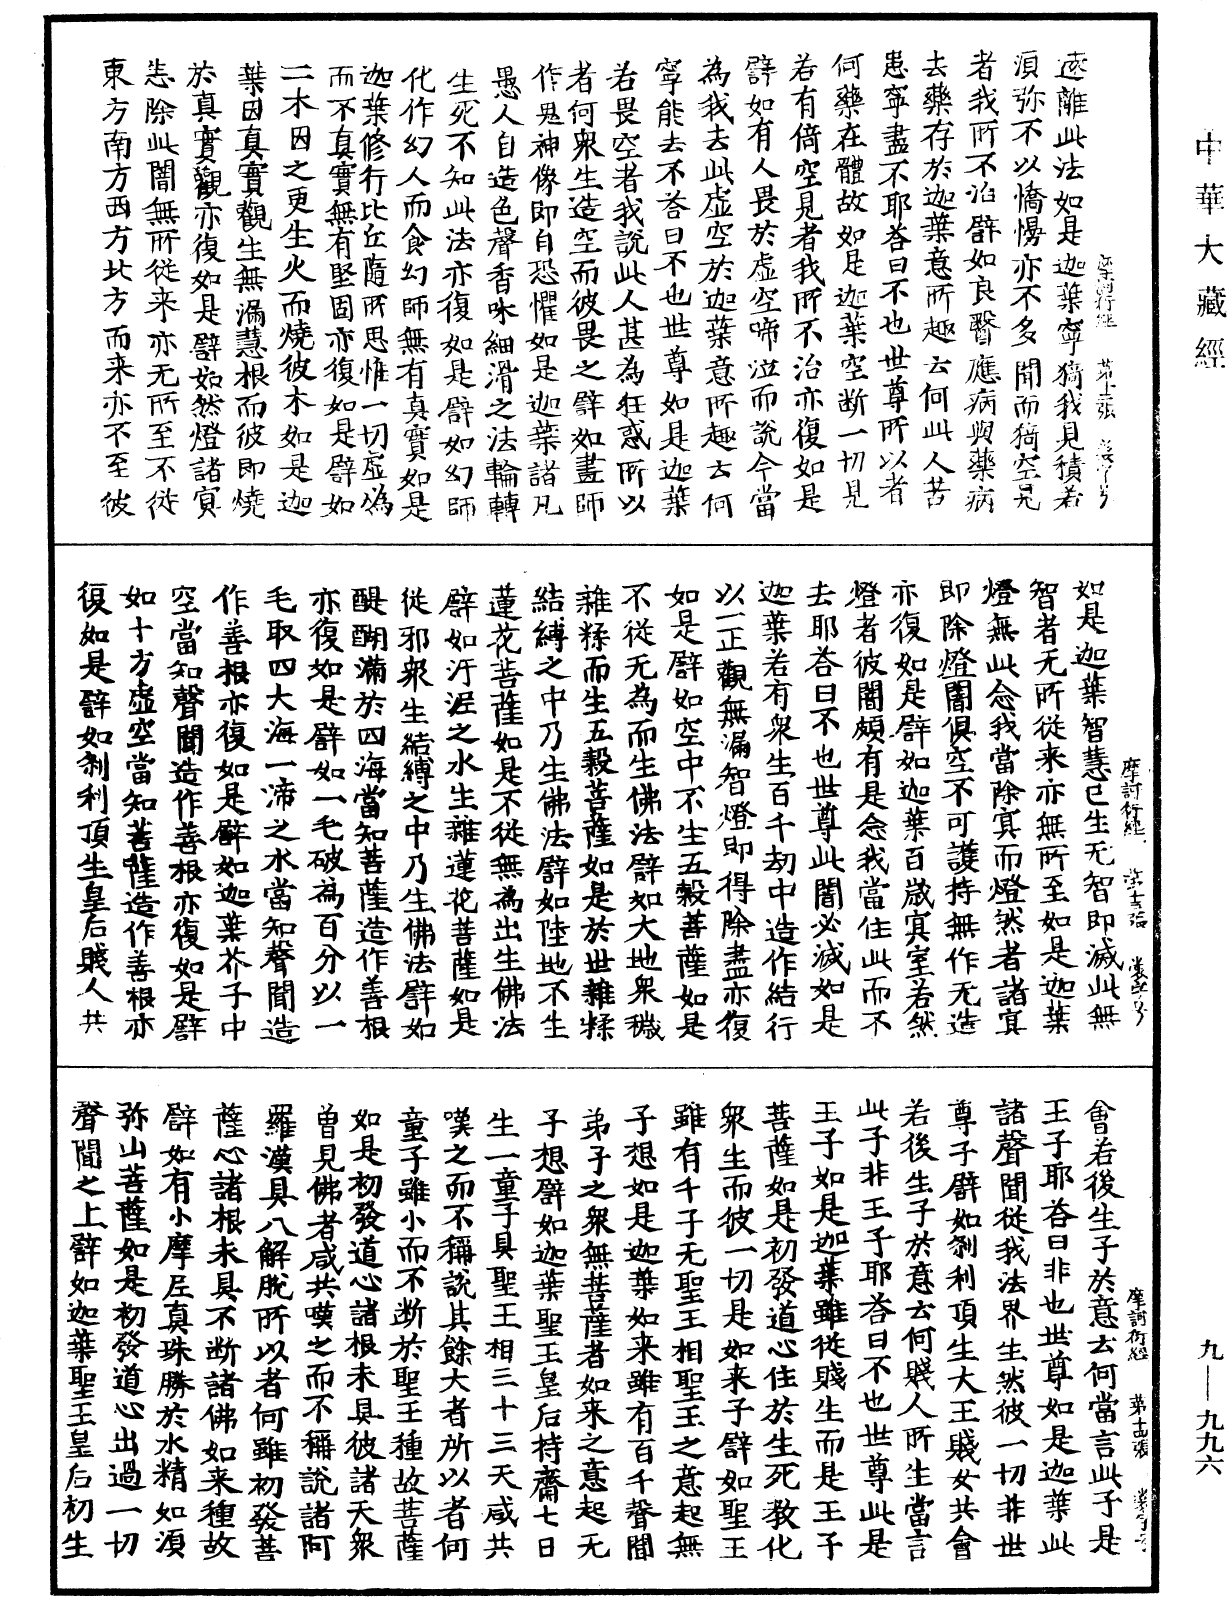 中華大藏經
遠離此法如是迦葉寧猗我見積若
湏弥不以憍慢亦不多聞而猗空見
者我所不治譬如良醫應病與藥病
去藥存於迦葉意所趣云何此人苦
患寧盡不耶荅曰不也世尊所以者
何藥在體故如是迦葉空断一切見
若有倚空見者我所不治亦復如是
譬如有人畏於虛空啼泣而說今當
為我去此虛空於迦葉意所趣云何
寧能去不荅曰不也世尊如是迦葉
若畏空者我說此人甚為狂惑所以
者何衆生造空而彼畏之譬如畫師
作鬼神像即自恐懼如是迦葉諸凡
愚人自造色聲香味細滑之法輪轉
生死不知此法亦復如是譬如幻師
化作幻人而食幻師無有真實如是
迦葉修行比丘隨所思惟一切虛偽
而不真實無有堅固亦復如是譬如
二木因之更生火而燒彼木如是迦
葉因真實觀生無漏慧根而彼即燒
於真實觀亦復如是譬如然燈諸冥
悉除此闇無所從来亦无所至不從
東方南方西方北方而来亦不至彼
摩訶衍經
如是迦葉智慧已生无智即滅此無
智者无所從来亦無所至如是迦葉
燈無此念我當除冥而燈然者諸冥
即除燈闇俱空不可護持無作无造
亦復如是譬如迦葉百歲冥室若然
燈者彼闇頗有是念我當住此而不
去耶荅曰不也世尊此闇必滅如是
迦葉若有衆生百千劫中造作結行
以一正觀無漏智燈即得除盡亦復
如是譬如空中不生五穀菩薩如是
不從无為而生佛法譬如大地衆穢
雜糅而生五穀菩薩如是於世雜糅
結縛之中乃生佛法譬如陸地不生
蓮花菩薩如是不從無為出生佛法
譬如汙泥之水生雜蓮花菩薩如是
從邪衆生結縛之中乃生佛法譬如
醍醐滿於四海當知菩薩造作善根
亦復如是譬如一毛破為百分以一
毛取四大海一渧之水當知聲聞造
作善根亦復如是譬如迦葉芥子中
空當知聲聞造作善根亦復如是譬
如十方虛空當知菩薩造作善根亦
復如是譬如剎利頂生皇后賤人共
摩訶衍經
會若後生子於意云何當言此子是
王子耶荅曰非也世尊如是迦葉此
諸聲聞從我法界生然彼一切非世
尊子譬如剎利頂生大王賤女共會
若後生子於意云何賤人所生當言
此子非王子耶荅曰不也世尊此是
王子如是迦葉雖從賤生而是王子
菩薩如是初發道心住於生死教化
衆生而彼一切是如来子譬如聖王
雖有千子无聖王相聖王之意起無
子想如是迦葉如来雖有百千聲聞
弟子之衆無菩薩者如来之意起无
子想譬如迦葉聖王皇后持齋七日
生一童子具聖王相三十三天咸共
嘆之而不稱說其餘大者所以者何
童子雖小而不断於聖王種故菩薩
如是初發道心諸根未具彼諸天衆
曾見佛者咸共嘆之而不稱說諸阿
羅漢具八解脫所以者何雖初發菩
薩心諸根未具不断諸佛如来種故
譬如有小摩尼真珠勝於水精如湏
弥山菩薩如是初發道心出過一切
聲聞之上譬如迦葉聖王皇后初生
九—九九六